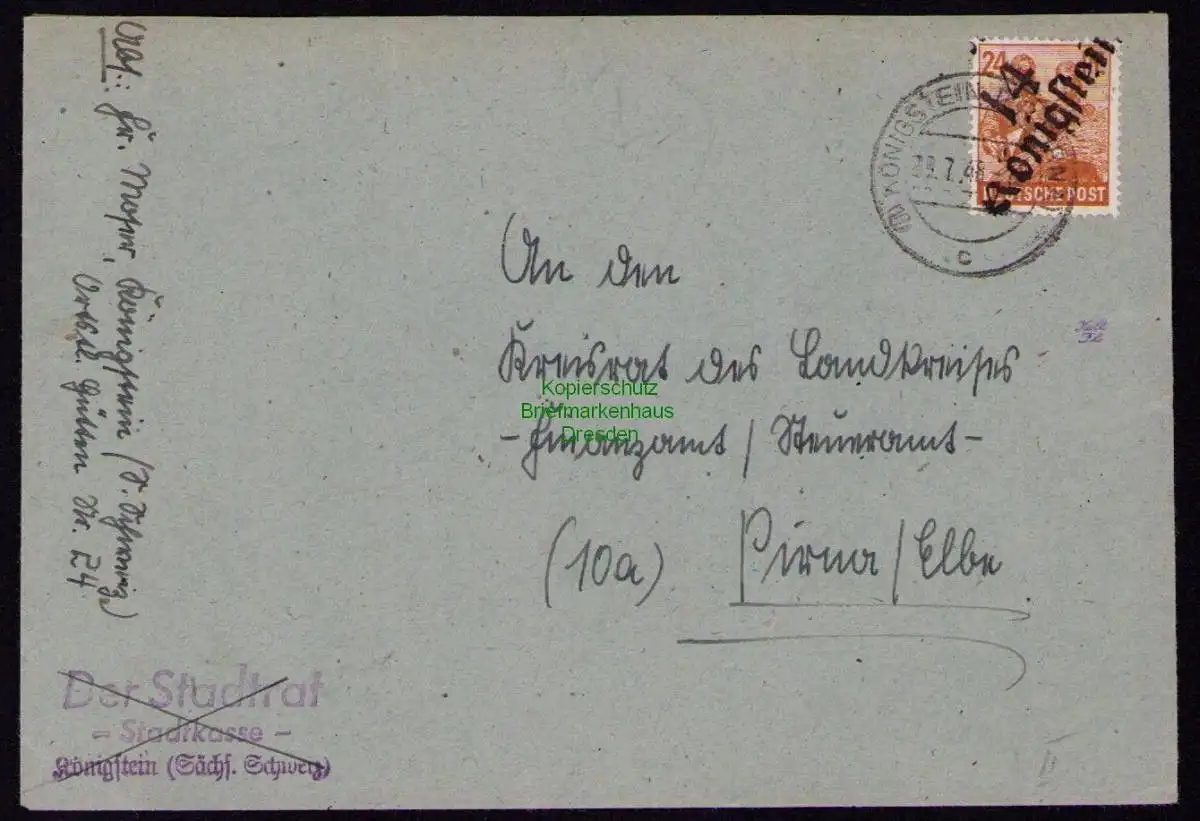 24
14
Königstein
DEUTSCHE POST
KÖNIGSTEIN
7.48
c
An den
Kreisrat des Landkreises
- Finanzamt / Steueramt -
(10a) Pirna / Elbe
Kopierschutz
Briefmarkenhaus
Dresden
Abs: Fr. Moser, Königstein (S. Schweiz)
Ortst. Hütten Nr. 24
Der Stadtrat
- Stadtkasse -
Königstein (Sächs. Schweiz)